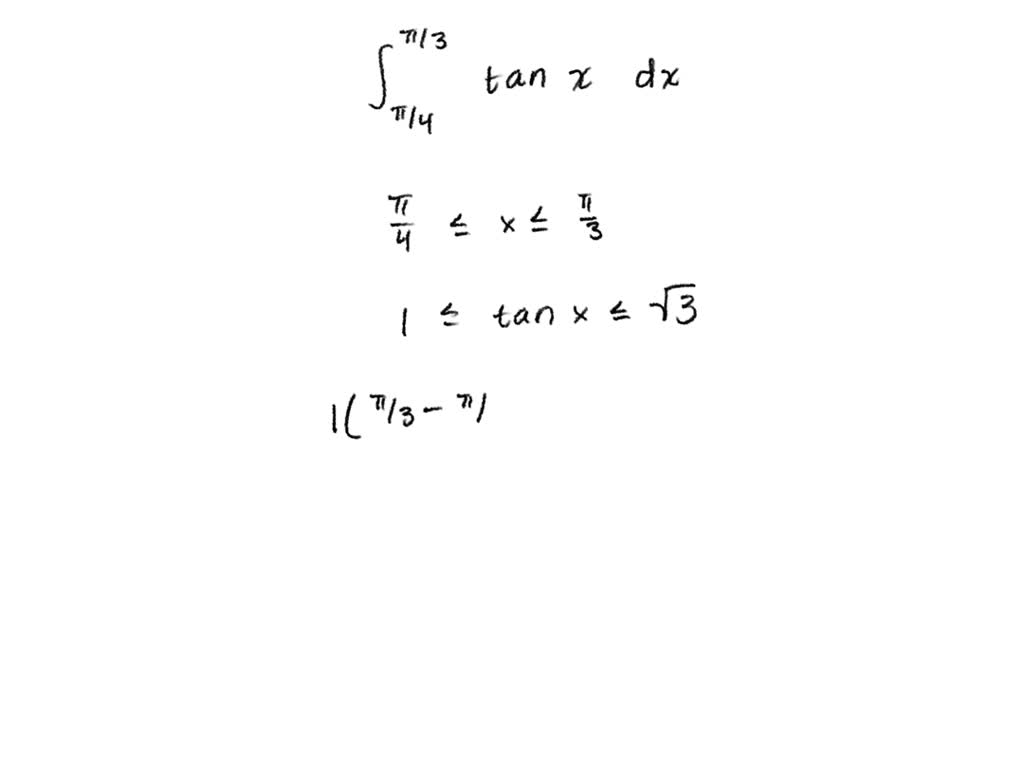 ∫_{π/4}^{π/3} tan x dx
π/4 ≤ x ≤ π/3
1 ≤ tan x ≤ √3
1(π/3 - π/